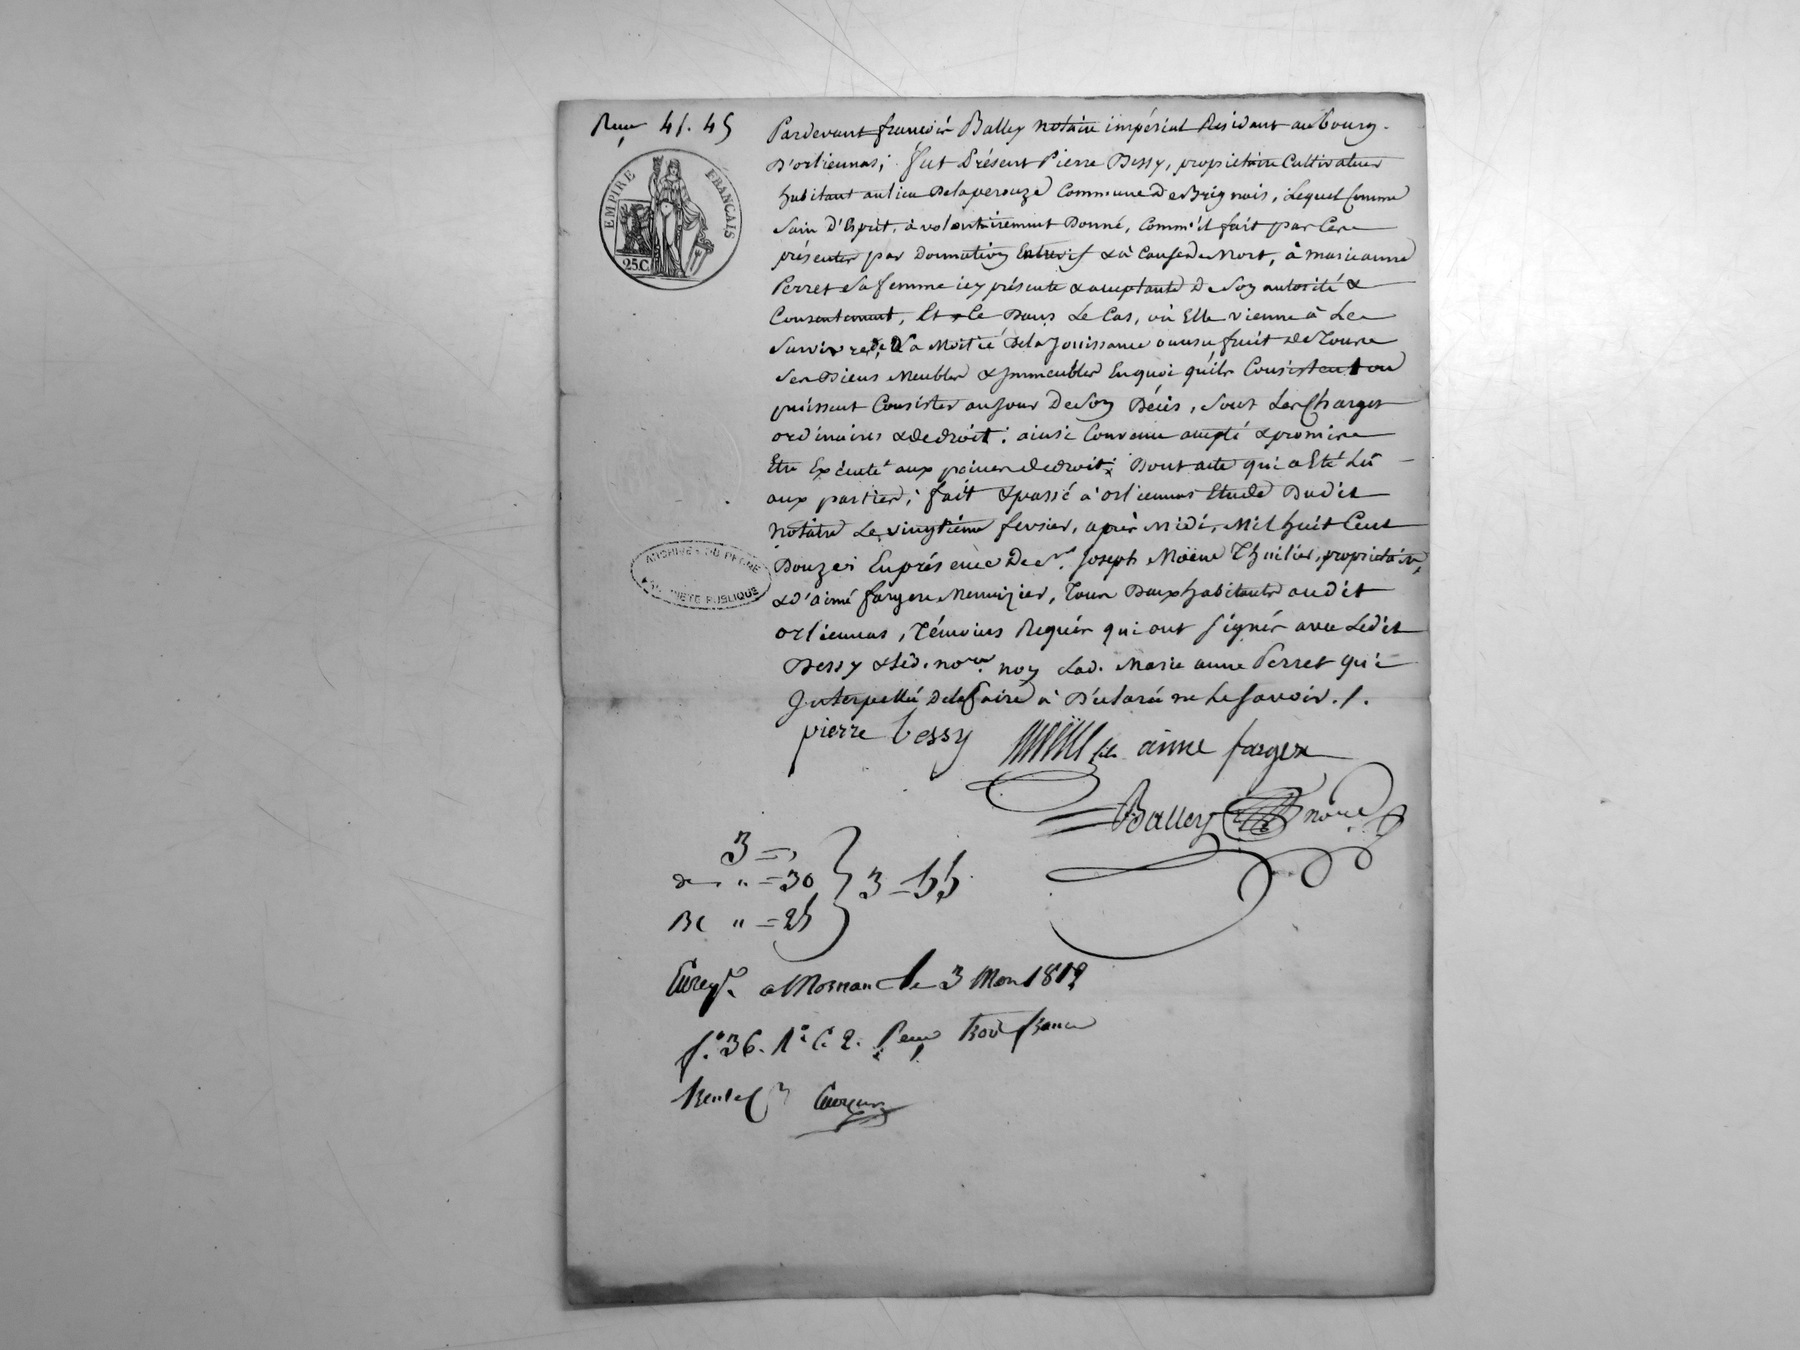 41. 45
EMPIRE FRANÇAIS
25C.
Pardevant françois Balley notaire impérial Residant au bourg
D'orliennas; fut Présent Pierre Bessy, propriétaire Cultivateur
habitant au lieu Delaperouze Commune De Brignais, Lequel Comme
Sain d'Esprit, à volontairement Donné, Comm'il fait par Ces
présentes par Donnation Entrevifs & à Cause de Mort, à marieanne
Perret Sa femme icy présente & acceptante De Son autorité &
Consentement, Et Ce Dans Le Cas, où Elle vienne à Le
Survivre, De La Moitié Dela Jouissance ou usufruit de Tous
Ses Biens Meubles & Immeubles En quoi qu'ils Consistent ou
puissent Consister au Jour De Son Décès, Sous Les Charges
ordinaires & de droit; ainsi Convenu accepté & promis
Etre Exécuté aux peines de droit; Dont acte qui a Eté Lû
aux parties; fait & passé à orliennas Etude Dudit
Notaire Le vingtième fevrier, après Midi, Mil huit Cent
Douze; En présence De Sr. Joseph Moëne Thuilier, propriétaire,
& D'aimé farges Menuizier, Tous Deux habitants audit
orliennas, Témoins Requis qui ont Signés avec Ledit
Bessy & led. nore. non Lad. Marie anne Perret qui
Interpellée De le faire à Déclaré ne le Savoir ./.
pierre bessy aime farges
Balley nore
ARCHIVES DU RHONE
PUBLIQUE
3 =
de " = 30 } 3 = 55
" = 25
Enregt. a Mornant le 3 Mars 1812
fo. 36. Ro. C. 2. Reçu trois francs